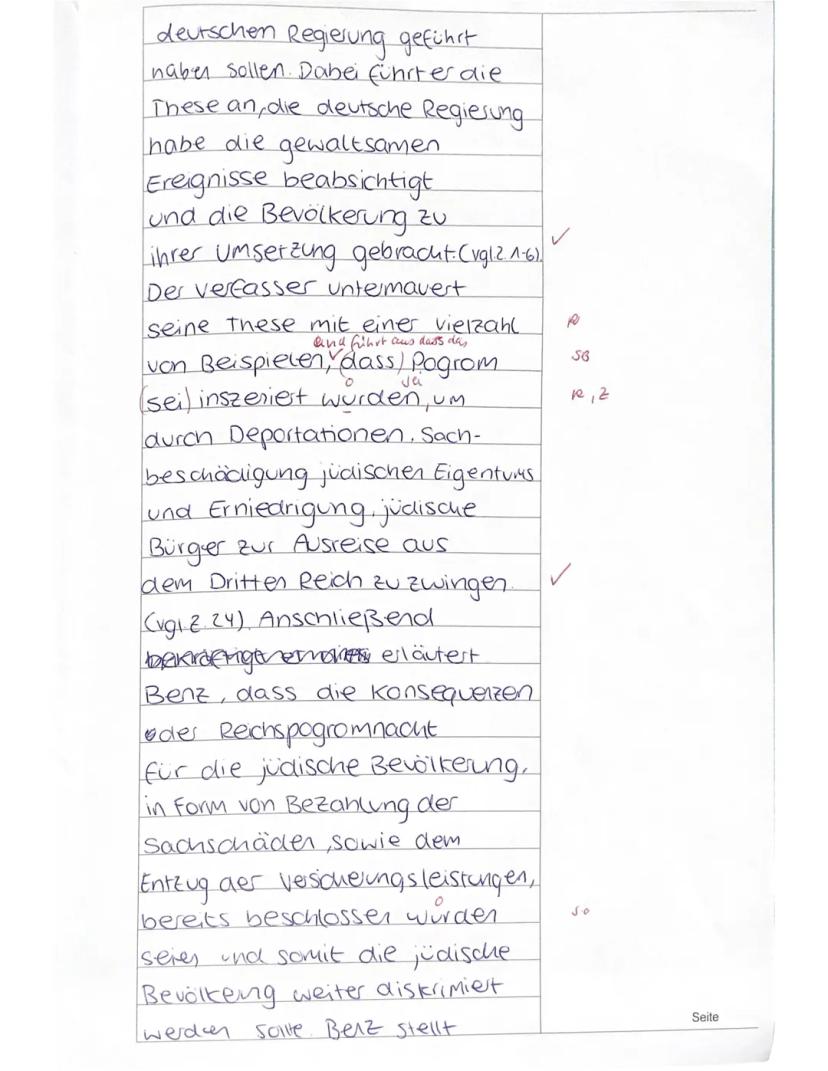 deutschen Regierung geführt
haben sollen. Dabei führt er die
These an, die deutsche Regierung
habe die gewaltsamen
Ereignisse beabsichtigt
und die Bevölkerung zu
ihrer Umsetzung gebracht. (vgl. Z. 1-6). ✓
Der Verfasser untermauert
seine These mit einer Vielzahl R
und führt aus dass das
von Beispielen, (dass) Pogrom SB
o sei
(sei) inszeniert wurden, um R, Z
durch Deportationen, Sach-
beschädigung jüdischen Eigentums
und Erniedrigung, jüdische
Bürger zur Ausreise aus
dem Dritten Reich zu zwingen. ✓
(vgl. Z. 24). Anschließend
erläutert
Benz, dass die Konsequenzen
der Reichspogromnacht
für die jüdische Bevölkerung,
in Form von Bezahlung der
Sachschäden, sowie dem
Entzug der Versicherungsleistungen,
o
bereits beschlossen wurden s.o
seien und somit die jüdische
Bevölkerung weiter diskrimiert
werden sollte. Benz stellt
Seite